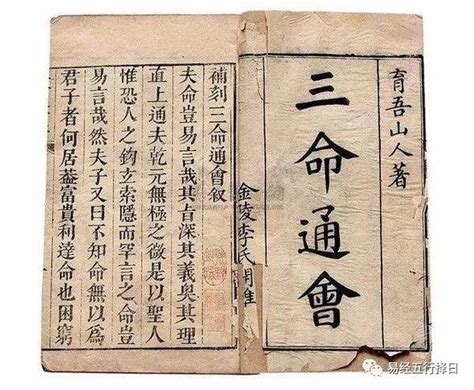 育吾山人著
三命通會
金陵李氏
補刻三命通會叙
夫命豈易言哉其旨深其義奧其理
直上通夫乾元無極之微是以聖人
惟恐人之鈎玄索隱而罕言之命豈
易言哉然夫子又曰不知命無以爲
君子者何居葢富貴利達命也困窮
易经五行择日